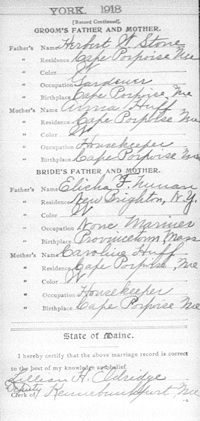 YORK. 1918
[Record Continued].
GROOM'S FATHER AND MOTHER.
Father's Name Herbert W. Stone
" Residence Cape Porpoise Me
" Color W
" Occupation Gardener
" Birthplace Cape Porpoise Me
Mother's Name Huff
" Residence Cape Porpoise Me
" Color W
" Occupation Housekeeper
" Birthplace Cape Porpoise Me
BRIDE'S FATHER AND MOTHER.
Father's Name Elisha F.
" Residence New Brighton, N.Y.
" Color W
" Occupation None Mariner
" Birthplace Mass
Mother's Name Caroline Huff
" Residence Cape Porpoise, Me
" Color W
" Occupation Housekeeper
" Birthplace Cape Porpoise Me
State of Maine.
I hereby certify that the above marriage record is correct
to the best of my knowledge and belief.
H. Eldridge
Deputy
Clerk of Kennebunkport Me